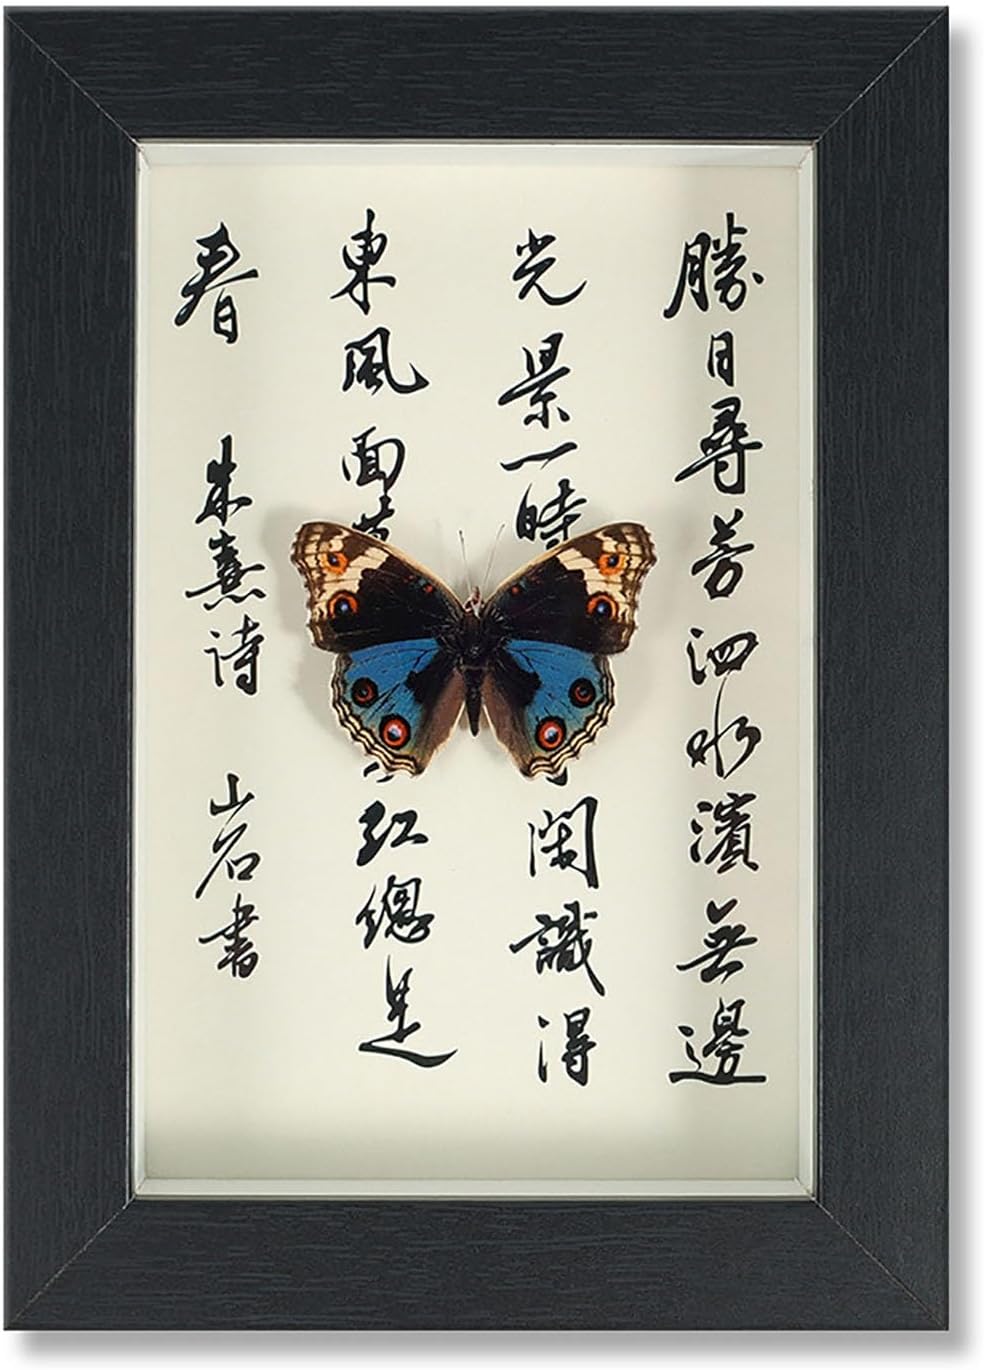 勝日尋芳泗水濱無邊
光景一時閑識得
東風面紅總是
春 朱熹诗 山石書